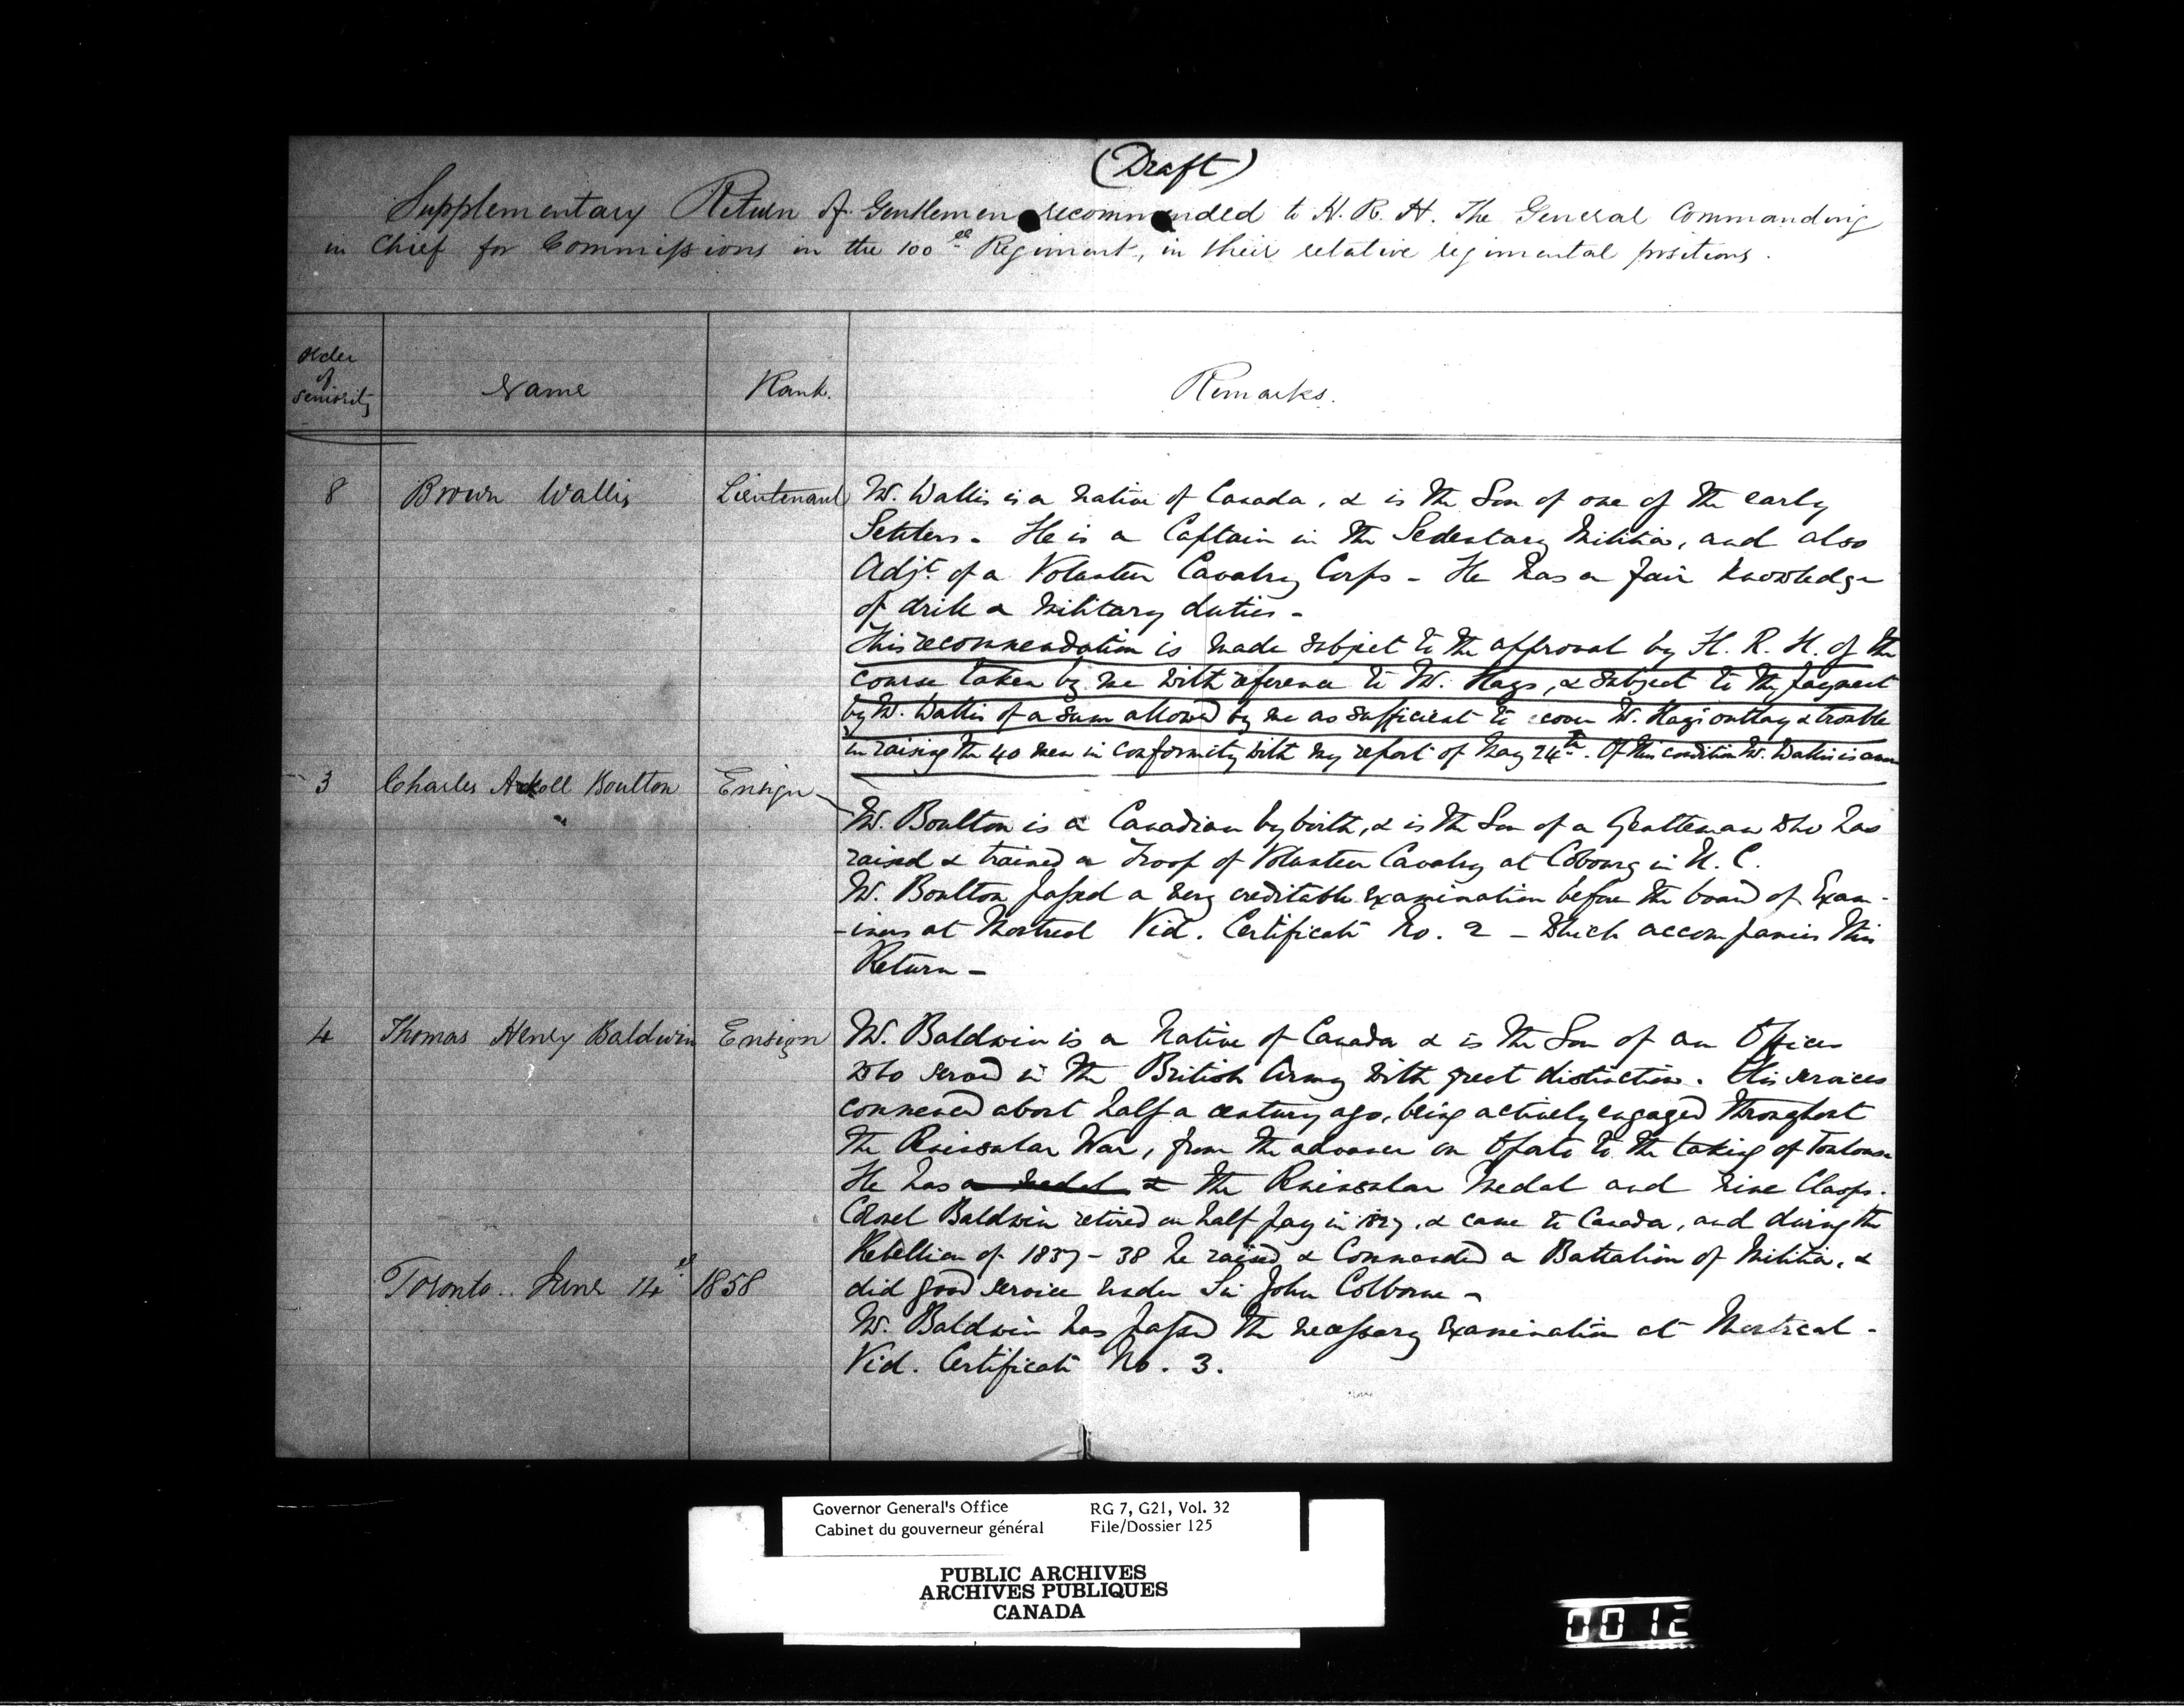 (Draft)
Supplementary Return of Gentlemen recommended to H. R. H. The General Commanding
in Chief for Commissions in the 100th Regiment, in their relative regimental positions.
Order of Seniority
Name
Rank.
Remarks.
8 Brown Wallis Lieutenant
Mr. Wallis is a native of Canada, & is the Son of one of the early
Settlers - He is a Captain in the Sedentary Militia, and also
Adjt. of a Volunteer Cavalry Corps - He has a fair knowledge
of drill & Military duties -
This recommendation is made subject to the approval by H. R. H. of the
course taken by me with reference to Mr. , & subject to the payment
by Mr. Wallis of a sum allowed by me as sufficient to cover Mr. outlay & trouble
in raising the 40 men in conformity with my report of May 24th. Of this condition Mr. Wallis is aware
3 Charles Boulton Ensign
Mr. Boulton is a Canadian by birth, & is the Son of a Gentleman who has
raised & trained a Troop of Volunteer Cavalry at Cobourg in U. C.
Mr. Boulton passed a very creditable examination before the board of Exam-
-iners at Montreal Vid. Certificate No. 2 - which accompanies this
Return -
4 Thomas Henry Baldwin Ensign
Mr. Baldwin is a Native of Canada & is the Son of an Officer
who served in the British Army with great distinction. His services
commenced about half a century ago, being actively engaged throughout
the Peninsular War, from the advance on Oporto to the taking of Toulouse
He has a medal & the Peninsular Medal and nine Clasps.
Colonel Baldwin retired on half pay in 1827, & came to Canada, and during the
Rebellion of 1837-38 he raised & Commanded a Battalion of Militia, &
did good service under Sir John Colborne -
Mr. Baldwin has passed the necessary Examination at Montreal -
Vid. Certificate No. 3.
Toronto.. June 14th 1858
Governor General's Office RG 7, G21, Vol. 32
Cabinet du gouverneur général File/Dossier 125
PUBLIC ARCHIVES
ARCHIVES PUBLIQUES
CANADA
0012